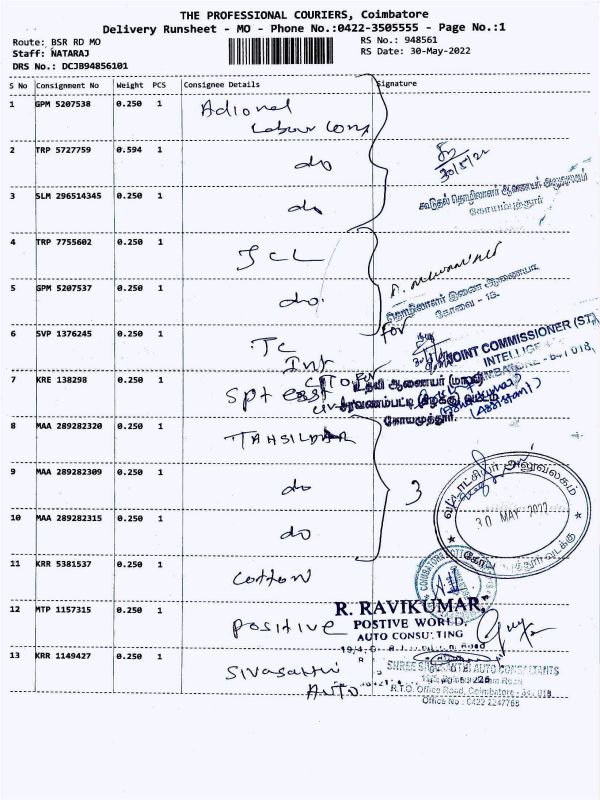 THE PROFESSIONAL COURIERS, Coimbatore
Delivery Runsheet - MO - Phone No.:0422-3505555 - Page No.:1
Route: BSR RD MO
RS No.: 948561
Staff: NATARAJ
RS Date: 30-May-2022
DRS No.: DCJB94856101
S No Consignment No Weight PCS Consignee Details Signature
1 GPM 5207538 0.250 1
Labour
2 TRP 5727759 0.594 1 do
30/5/22
3 SLM 296514345 0.250 1 do
கூடுதல் தொழிலாளர் ஆணையர் அலுவலகம்
கோயம்புத்தூர்
4 TRP 7755602 0.250 1 JCL
5 GPM 5207537 0.250 1 do.
தொழிலாளர் இணை ஆணையர்
கோவை - 18.
for
6 SVP 1376245 0.250 1 Tc
Int
JOINT COMMISSIONER (ST)
INTELLIGE
641 018,
7 KRE 138298 0.250 1
CTO
உதவி ஆணையர் (மாவ)
(Assistant)
கோயமுத்தூர்.
8 MAA 289282320 0.250 1 TAHSILDAR
9 MAA 289282309 0.250 1 do
3
30 MAY 2022
10 MAA 289282315 0.250 1 do
11 KRR 5381537 0.250 1 Cotton
12 MTP 1157315 0.250 1 Positive
R. RAVIKUMAR,
POSTIVE WORLD,
AUTO CONSULTING
13 KRR 1149427 0.250 1 Sivasakthi
Auto
AUTO CONSULTANTS
R.T.O. Office Road, Coimbatore - 641 018.
Office No : 0422 2247765